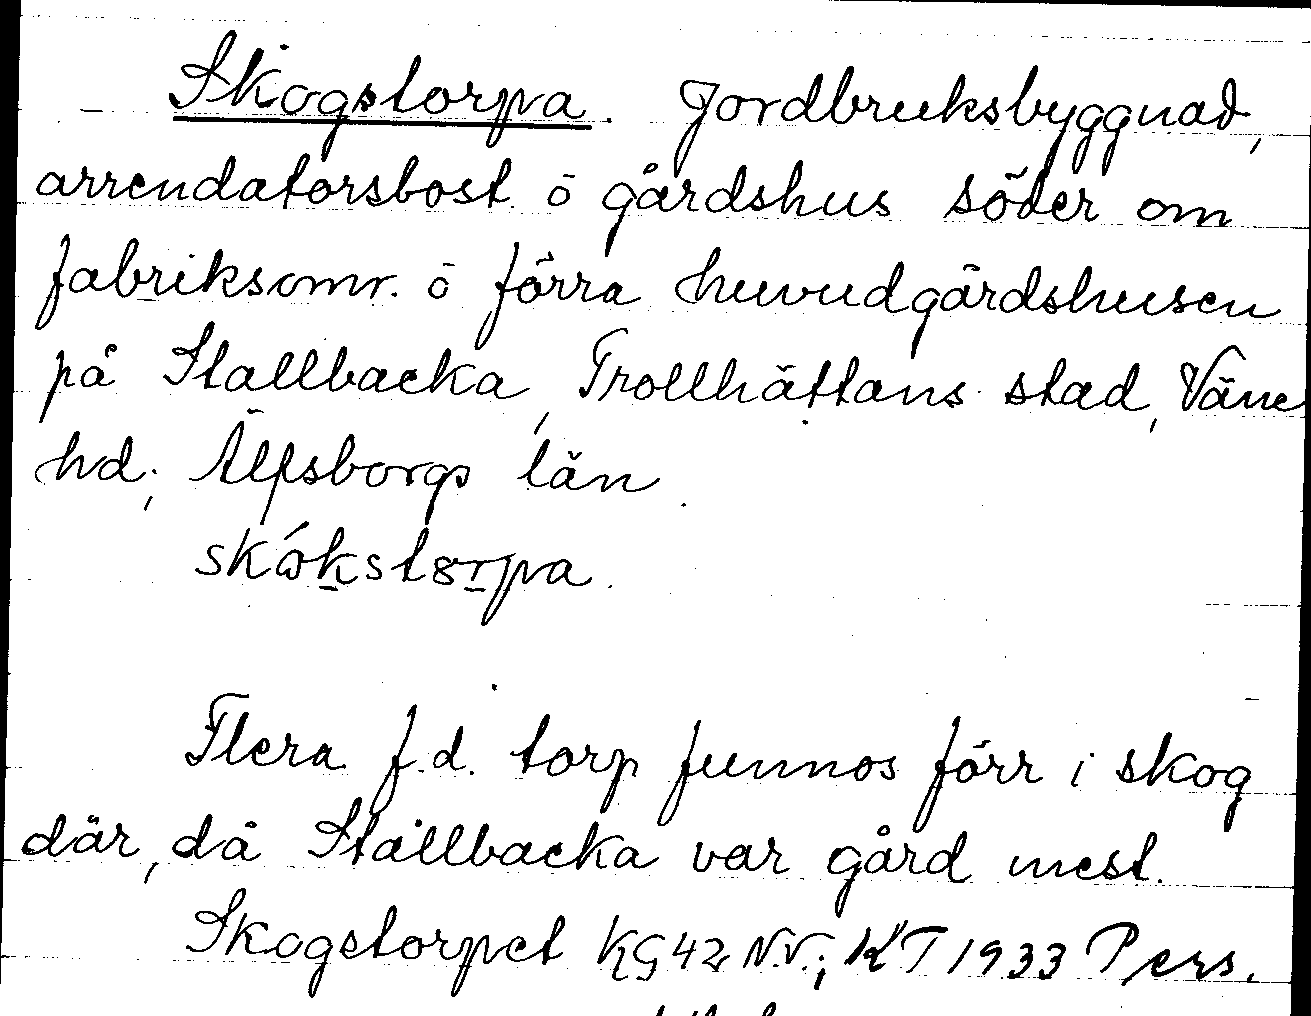 Skogstorpa. Jordbruksbyggnad,
arrendatorsbost. ö gårdshus söder om
fabriksomr. ö förra huvudgårdshusen
på Stallbacka, Trollhättans stad, Väne
hd; Älfsborgs län.
skɷ́kstɤrpa.
Flera f.d. torp funnos förr i skog
där, då Stallbacka var gård mest.
Skogstorpet KG42 N.V.; KT 1933 Pers.